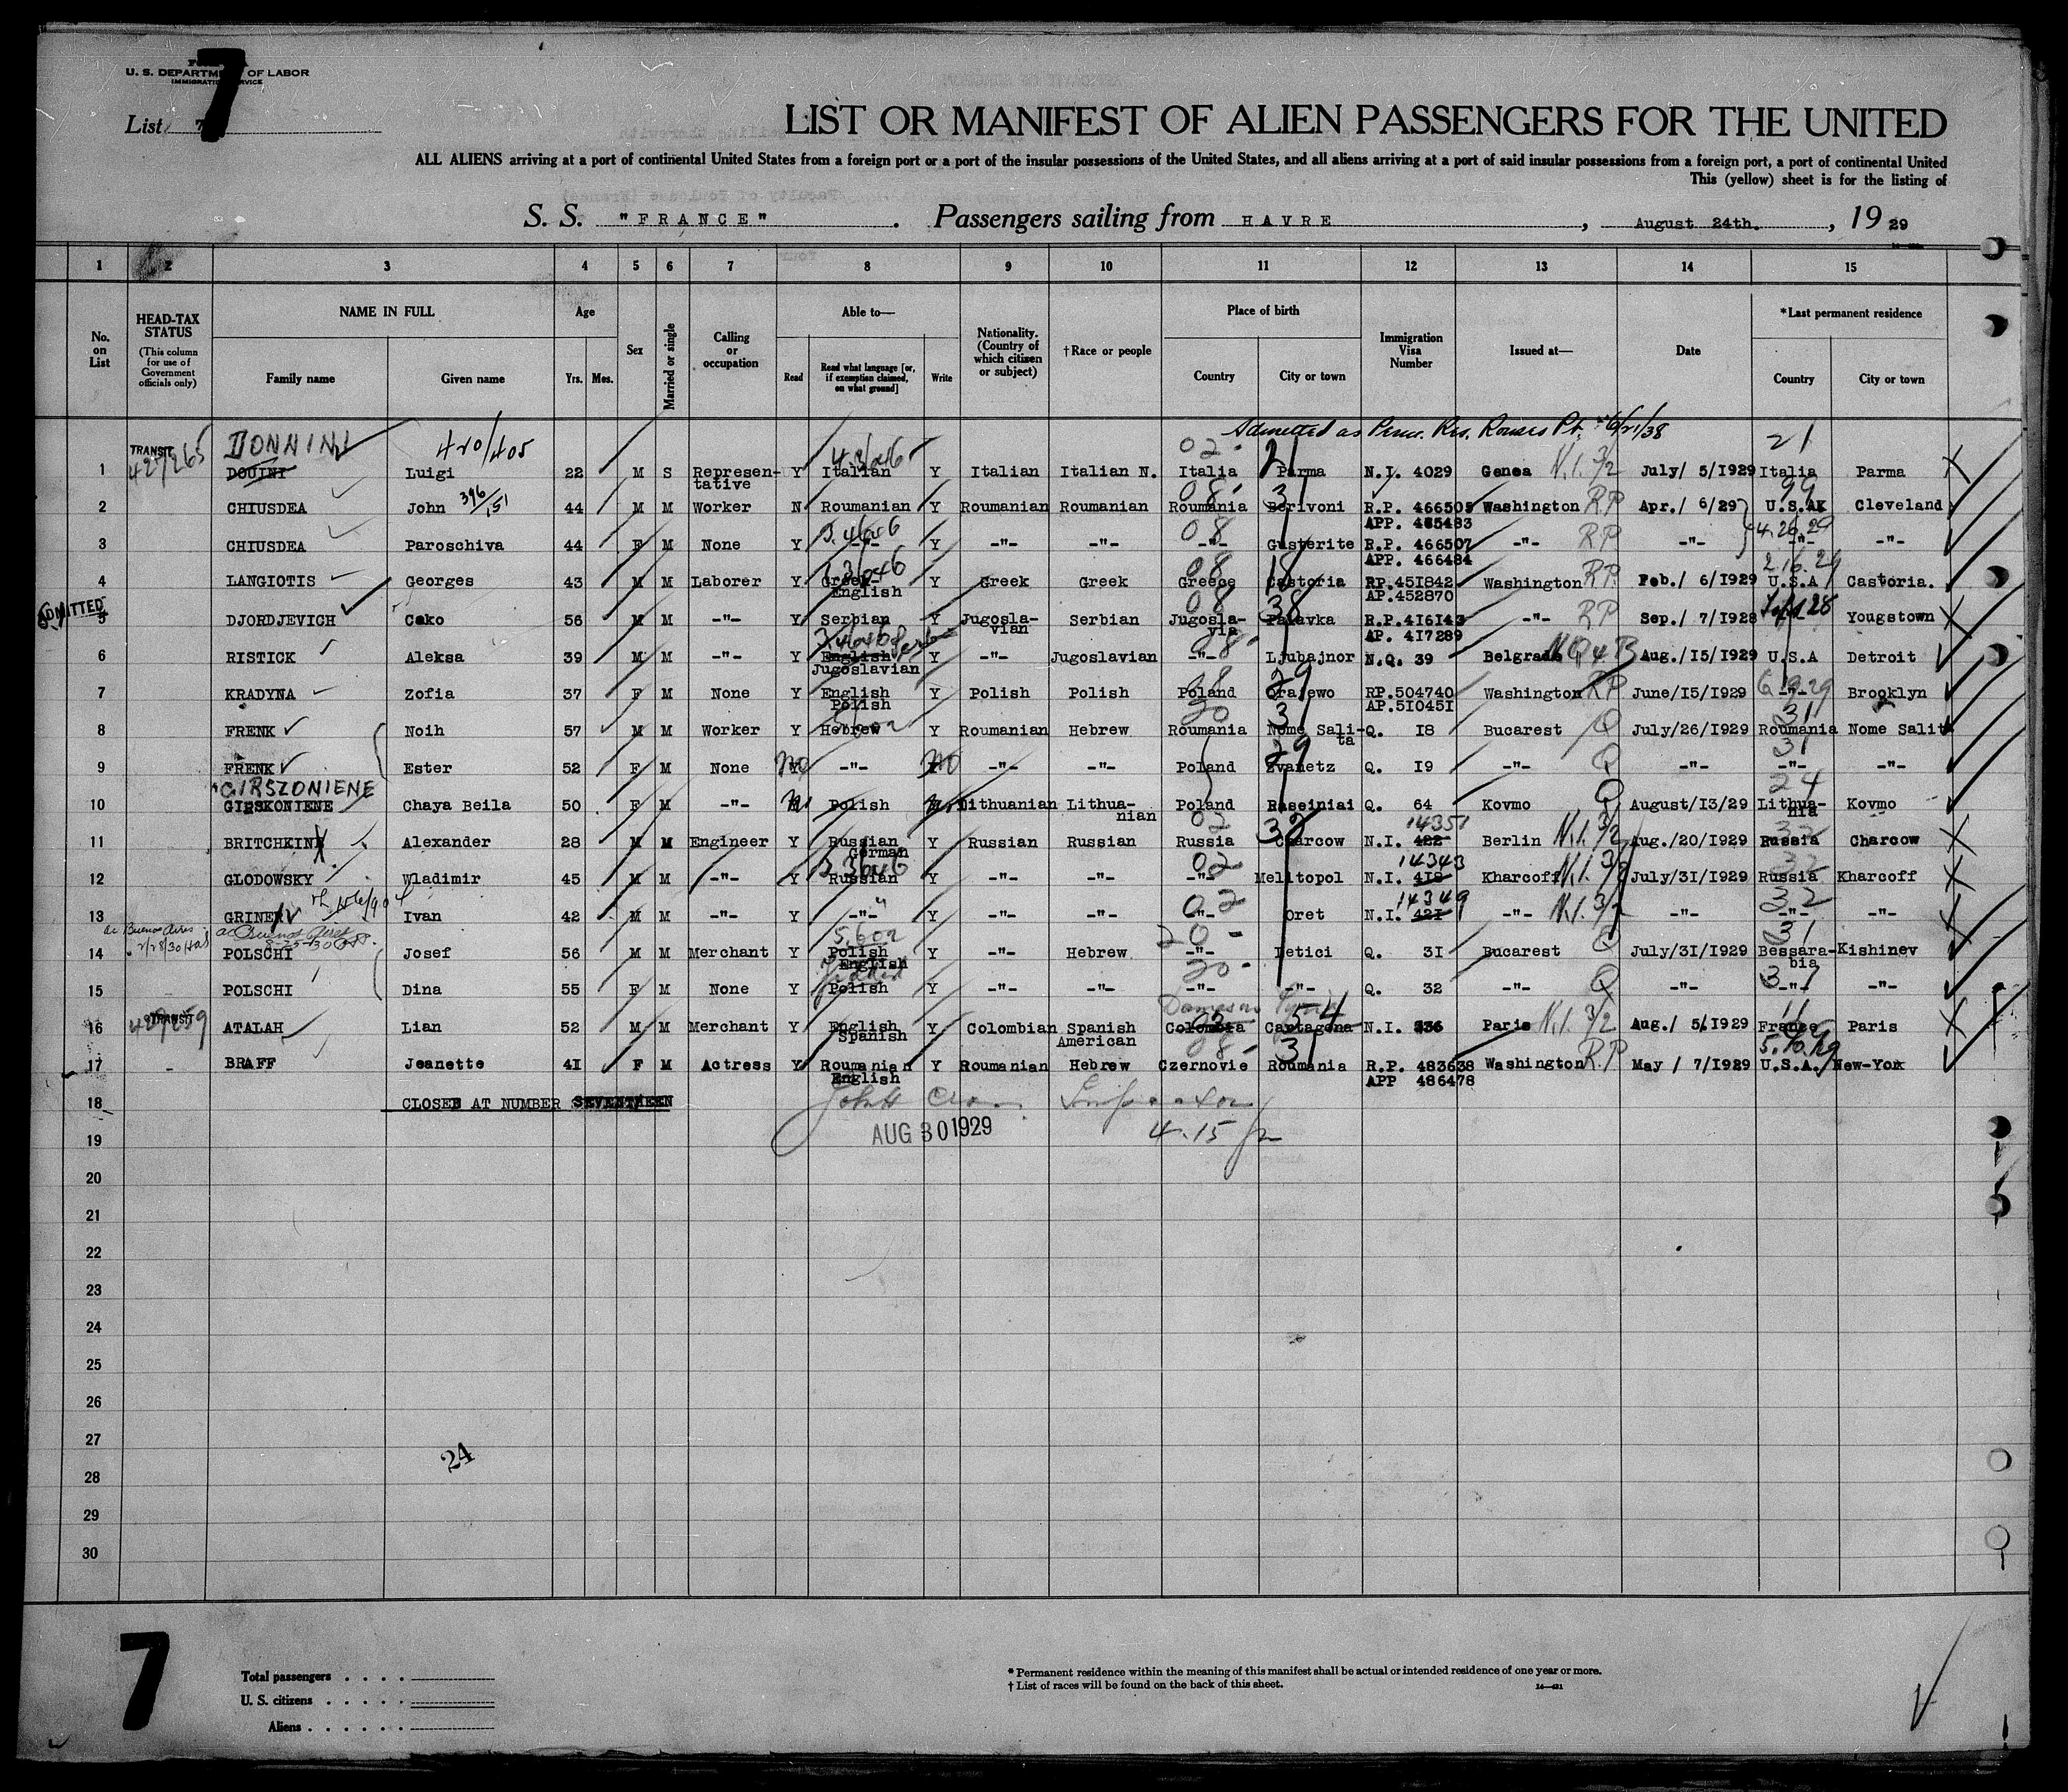 7
U. S. DEPARTMENT OF LABOR
IMMIGRATION SERVICE
List 7
LIST OR MANIFEST OF ALIEN PASSENGERS FOR THE UNITED
ALL ALIENS arriving at a port of continental United States from a foreign port or a port of the insular possessions of the United States, and all aliens arriving at a port of said insular possessions from a foreign port, a port of continental United
This (yellow) sheet is for the listing of
S. S. "FRANCE" . Passengers sailing from HAVRE , August 24th. , 1929
1 2 3 4 5 6 7 8 9 10 11 12 13 14 15
No. on List
HEAD-TAX STATUS
(This column for use of Government officials only)
NAME IN FULL
Family name Given name
Age
Yrs. Mos.
Sex
Married or single
Calling or occupation
Able to—
Read
Read what language [or, if exemption claimed, on what ground]
Write
Nationality. (Country of which citizen or subject)
†Race or people
Place of birth
Country City or town
Immigration Visa Number
Issued at—
Date
*Last permanent residence
Country City or town
Admitted as Perm. Res. Rouses Pt.
TRANSIT 427265 DONNINI 420/405 02 21
1 DOUINI Luigi 22 M S Represen- Y Italian Y Italian Italian N. Italia Parma N.I. 4029 Genoa N.I. 3/2 July/ 5/1929 Italia Parma
tative
2 CHIUSDEA John 396/151 44 M M Worker N Roumanian Y Roumanian Roumanian Roumania Berivoni R.P. 466505 Washington RP Apr./ 6/29 U.S.A Cleveland
APP. 465483
3 CHIUSDEA Paroschiva 44 F M None Y -"- Y -"- -"- -"- Gusterite R.P. 466507 -"- RP -"- -"- -"-
APP. 466484
4 LANGIOTIS Georges 43 M M Laborer Y Greek Y Greek Greek Greece Castoria RP.451842 Washington RP Feb./ 6/1929 U.S.A Castoria.
English AP.452870
ADMITTED
5 DJORDJEVICH Cako 56 M M -"- Y Serbian Y Jugosla- Serbian Jugosla- Palavka R.P.416143 -"- RP Sep./ 7/1928 Yougstown
vian via AP. 417289
6 RISTICK Aleksa 39 M M -"- Y English Y -"- Jugoslavian -"- Ljubajnor N.Q. 39 Belgrade Aug./15/1929 U.S.A Detroit
Jugoslavian
7 KRADYNA Zofia 37 F M None Y English Y Polish Polish Poland Grajewo RP.504740 Washington RP June/15/1929 -"- Brooklyn
Polish AP.510451
8 FRENK Noih 57 M M Worker Y Hebrew Y Roumanian Hebrew Roumania Nome Sali- Q. 18 Bucarest Q July/26/1929 Roumania Nome Salit
ta
9 FRENK Ester 52 F M None no -"- no -"- -"- Poland Zvanetz Q. 19 -"- Q -"- -"- -"-
GIRSZONIENE
10 GIRSKONIENE Chaya Beila 50 F M -"- Polish Lithuanian Lithua- Poland Raseiniai Q. 64 Kovmo Q August/13/29 Lithua- Kovmo
nian nia
14351
11 BRITCHKIN Alexander 28 M M Engineer Y Russian Y Russian Russian Russia Charcow N.I. 422 Berlin N.I. 3/2 Aug./20/1929 Russia Charcow
German
14343
12 GLODOWSKY Wladimir 45 M M -"- Y Russian Y -"- -"- -"- Melitopol N.I. 418 Kharcoff N.I. 3/2 July/31/1929 Russia Kharcoff
14349
13 GRINER Ivan 42 M M -"- Y -"- Y -"- -"- -"- Oret N.I. 421 -"- N.I. 3/2 -"- -"- -"-
14 POLSCHI Josef 56 M M Merchant Y Polish Y -"- Hebrew -"- Letici Q. 31 Bucarest Q July/31/1929 Bessara- Kishinev
English bia
15 POLSCHI Dina 55 F M None Y Polish Y -"- -"- -"- -"- Q. 32 -"- Q -"- -"- -"-
TRANSIT
16 ATALAH Lian 52 M M Merchant Y English Y Colombian Spanish Colombia Cartagena N.I. 336 Paris N.I. 3/2 Aug./ 5/1929 France Paris
Spanish American
17 BRAFF Jeanette 41 F M Actress Y Roumanian Y Roumanian Hebrew Czernovie Roumania R.P. 483638 Washington RP May / 7/1929 U.S.A. New-York
English APP 486478
18 CLOSED AT NUMBER SEVENTEEN
19 AUG 30 1929 4.15
20
21
22
23
24
25
26
27
24
28
29
30
7
Total passengers . . . .
U. S. citizens . . . . .
Aliens . . . . . .
* Permanent residence within the meaning of this manifest shall be actual or intended residence of one year or more.
† List of races will be found on the back of this sheet.